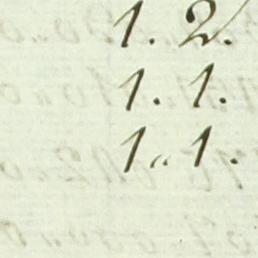 1. 2.
1. 1.
1 „ 1.